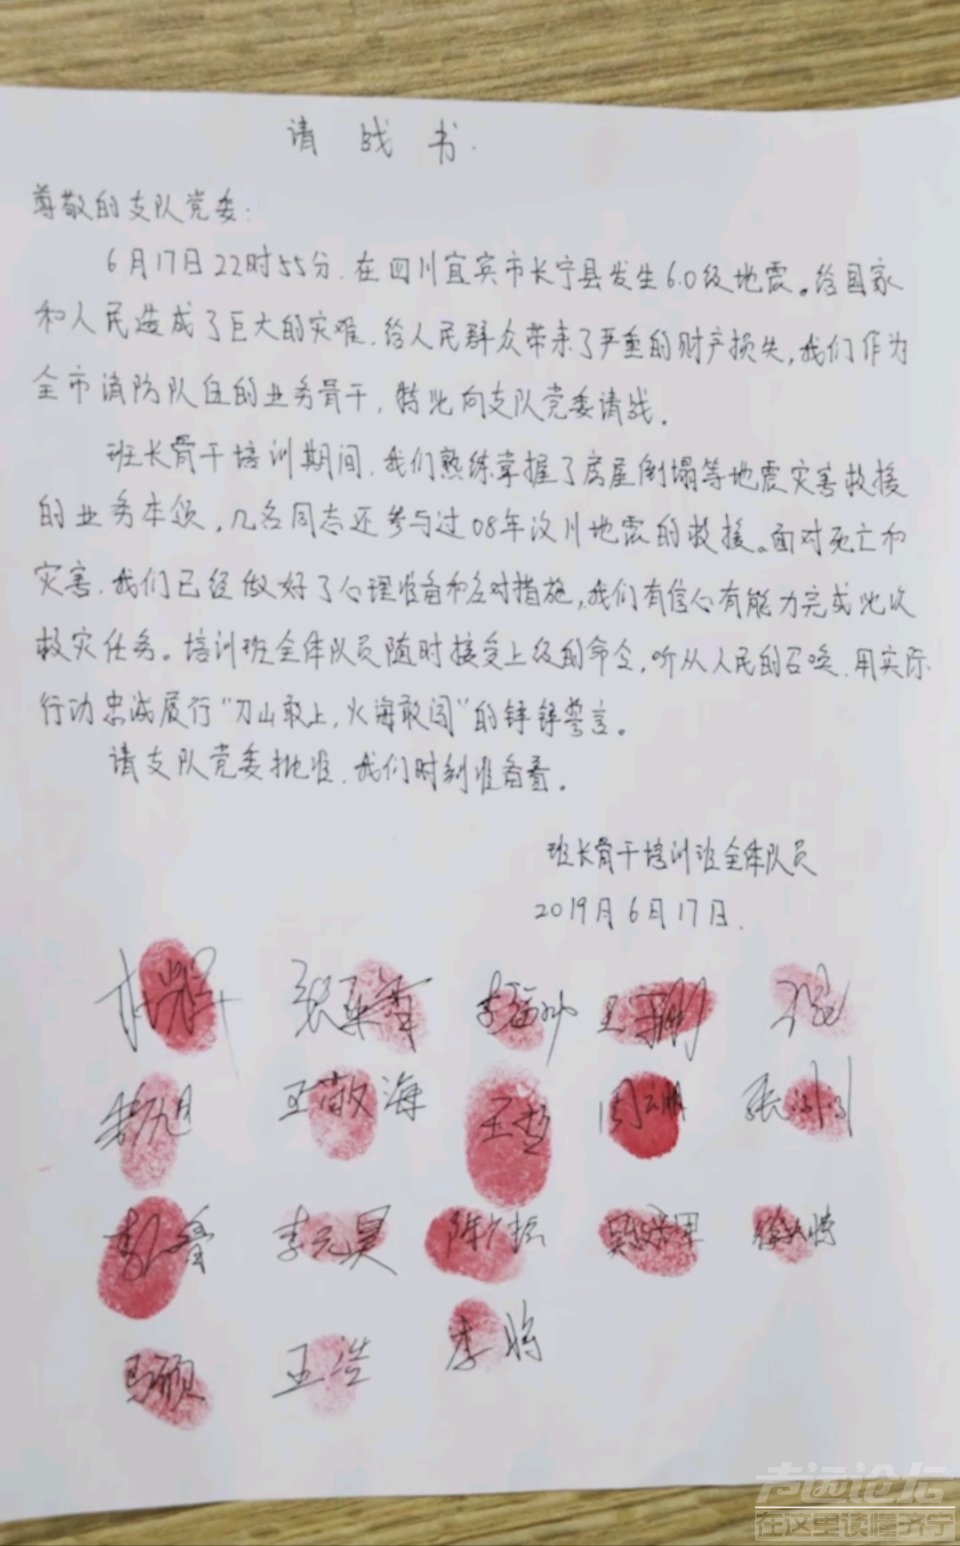 请战书.
尊敬的支队党委:
6月17日22时55分.在四川宜宾市长宁县发生6.0级地震。给国家
和人民造成了巨大的灾难.给人民群众带来了严重的财产损失,我们作为
全市消防队伍的业务骨干,特此向支队党委请战.
班长骨干培训期间.我们熟练掌握了房屋倒塌等地震灾害救援
的业务本领,几名同志还参与过08年汶川地震的救援。面对死亡和
灾害.我们已经做好了心理准备和应对措施,我们有信心有能力完成此次
救灾任务。培训班全体队员随时接受上级的命令,听从人民的召唤.用实际
行动忠诚履行“刀山敢上,火海敢闯”的铮铮誓言。
请支队党委批准.我们时刻准备着。
班长骨干培训班全体队员
2019月6月17日.
王敬海 王哲
李元昊
马硕 王浩 李腾
声远论坛
在这里读懂济宁